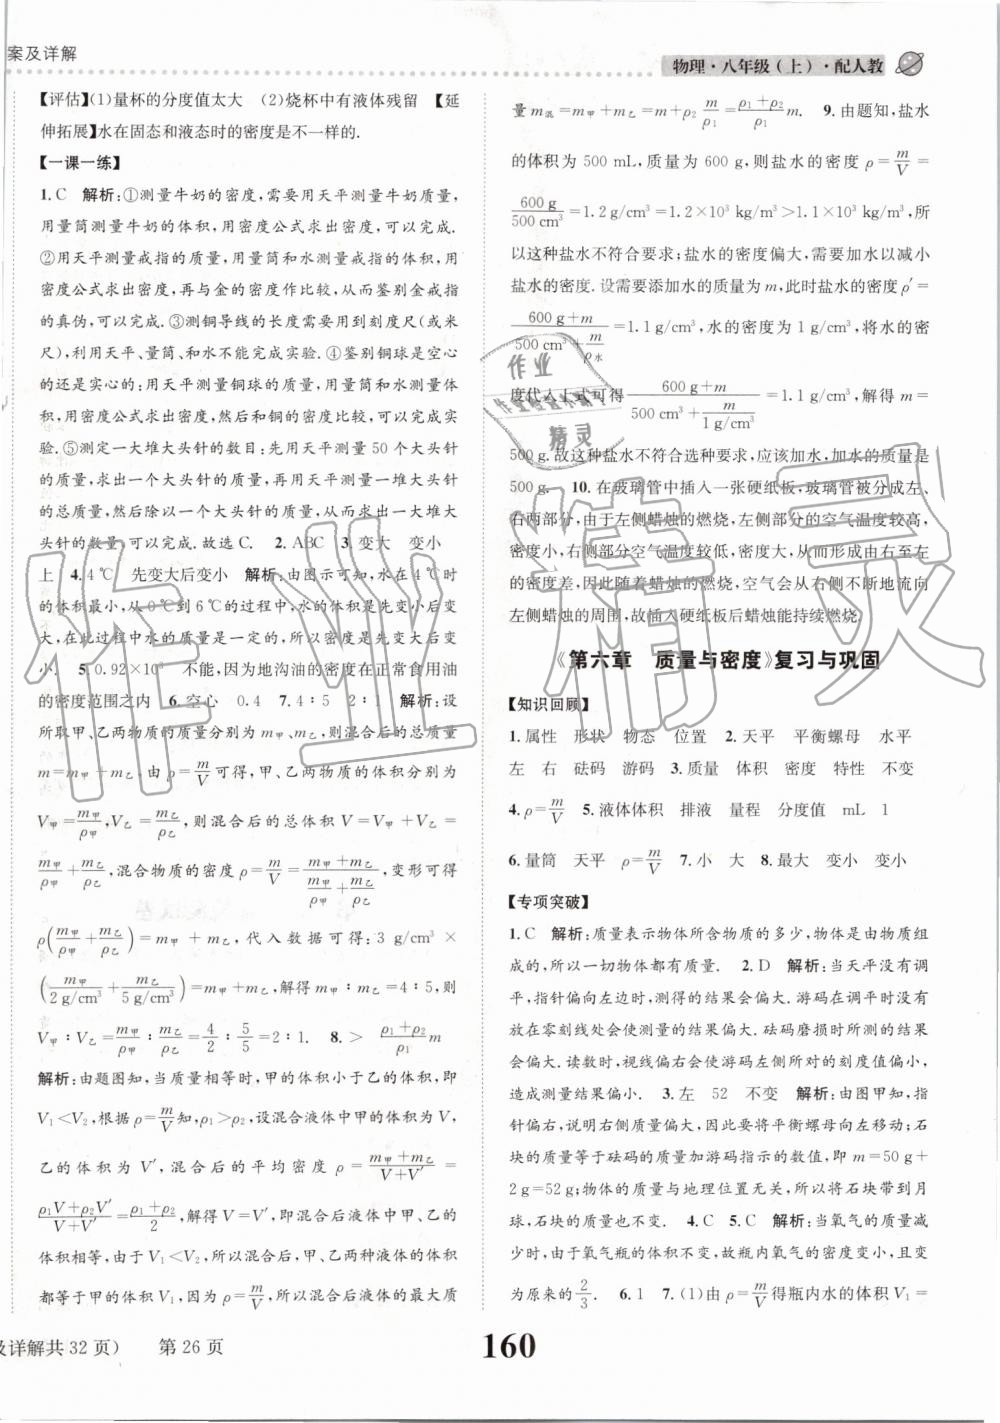 案及详解
物理·八年级(上)·配人教
【评估】(1)量杯的分度值太大 (2)烧杯中有液体残留 【延
伸拓展】水在固态和液态时的密度是不一样的.
【一课一练】
1.C 解析:①测量牛奶的密度,需要用天平测量牛奶质量,
用量筒测量牛奶的体积,用密度公式求出密度,可以完成.
②用天平测量戒指的质量,用量筒和水测量戒指的体积,用
密度公式求出密度,再与金的密度作比较,从而鉴别金戒指
的真伪,可以完成.③测铜导线的长度需要用到刻度尺(或米
尺),利用天平、量筒、和水不能完成实验.④鉴别铜球是空心
的还是实心的:用天平测量铜球的质量,用量筒测量体积,利
用密度公式求出密度,然后和铜的密度比较,可以完成实
验.⑤测定一大堆大头针的数目:先用天平测量 50 个大头针
的质量,求出一个大头针的质量,再用天平测量一大堆大头针
的总质量,然后除以一个大头针的质量,从而求出一大堆大
头针的数量,可以完成.故选 C. 2.ABC 3.变大 变小
上 4.4℃ 先变大后变小 解析:由图示可知,水在 4℃时
的体积最小,从 0℃到 6℃的过程中,水的体积是先变小后变
大,在此过程中水的质量是一定的,所以密度是先变大后变
小 5.0.92×10³ 不能,因为地沟油的密度在正常食用油
的密度范围之内 6.空心 0.4 7.4∶5 2∶1 解析:设
所取甲、乙两物质的质量分别为 m甲、m乙,则混合后的总质量
m=m甲+m乙,由 ρ=m/V 可得,甲、乙两物质的体积分别为
V甲=m甲/ρ甲,V乙=m乙/ρ乙,则混合后的总体积 V=V甲+V乙=
m甲/ρ甲+m乙/ρ乙,混合物质的密度 ρ=m/V=(m甲+m乙)/(m甲/ρ甲+m乙/ρ乙),变形可得
ρ(m甲/ρ甲+m乙/ρ乙)=m甲+m乙,代入数据可得:3 g/cm³×
(m甲/2 g/cm³+m乙/5 g/cm³)=m甲+m乙,解得 m甲∶m乙=4∶5,则
V甲∶V乙=m甲/ρ甲∶m乙/ρ乙=4/2∶5/5=2∶1. 8.> (ρ₁+ρ₂)/ρ₁ m
解析:由题图知,当质量相等时,甲的体积小于乙的体积,即
V₁<V₂,根据 ρ=m/V 知,ρ₁>ρ₂,设混合液体中甲的体积为 V,
乙的体积为 V′,混合后的平均密度 ρ=(m甲+m乙)/(V+V′)=
(ρ₁V+ρ₂V′)/(V+V′)=(ρ₁+ρ₂)/2,解得 V=V′,即混合后液体中甲、乙的
体积相等,由于 V₁<V₂,所以混合后,甲、乙两种液体的体积
都等于甲的体积 V₁,因为 ρ=m/V,所以混合后液体的最大质
量 m混=m甲+m乙=m+ρ₂ m/ρ₁=(ρ₁+ρ₂)/ρ₁ m. 9.由题知,盐水
的体积为 500 mL,质量为 600 g,则盐水的密度 ρ=m/V=
600 g/500 cm³=1.2 g/cm³=1.2×10³ kg/m³>1.1×10³ kg/m³,所
以这种盐水不符合要求;盐水的密度偏大,需要加水以减小
盐水的密度.设需要添加水的质量为 m,此时盐水的密度 ρ′=
(600 g+m)/(500 cm³+m/ρ水)=1.1 g/cm³,水的密度为 1 g/cm³,将水的密
度代入上式可得 (600 g+m)/(500 cm³+m/1 g/cm³)=1.1 g/cm³,解得 m=
500 g.故这种盐水不符合选种要求,应该加水,加水的质量是
500 g. 10.在玻璃管中插入一张硬纸板,玻璃管被分成左、
右两部分,由于左侧蜡烛的燃烧,左侧部分的空气温度较高,
密度小,右侧部分空气温度较低,密度大,从而形成由右至左
的密度差,因此随着蜡烛的燃烧,空气会从右侧不断地流向
左侧蜡烛的周围,故插入硬纸板后蜡烛能持续燃烧.
《第六章 质量与密度》复习与巩固
【知识回顾】
1.属性 形状 物态 位置 2.天平 平衡螺母 水平
左 右 砝码 游码 3.质量 体积 密度 特性 不变
4.ρ=m/V 5.液体体积 排液 量程 分度值 mL 1
6.量筒 天平 ρ=m/V 7.小 大 8.最大 变小 变小
【专项突破】
1.C 解析:质量表示物体所含物质的多少,物体是由物质组
成的,所以一切物体都有质量. 2.D 解析:当天平没有调
平,指针偏向左边时,测得的结果会偏大.游码在调平时没有
放在零刻线处会使测量的结果偏大.砝码磨损时所测的结果
会偏大.读数时,视线偏右会使游码左侧所对的刻度值偏小,
造成测量结果偏小. 3.左 52 不变 解析:由图甲知,指
针偏右,说明右侧质量偏大,因此要将平衡螺母向左调;石
块的质量等于砝码的质量加游码指示的数值,即 m=50 g+
2 g=52 g;物体的质量与地理位置无关,所以将石块带到月
球,石块的质量也不变. 4.C 5.C 解析:当氧气的质量减
少时,由于氧气瓶的体积不变,故瓶内氧气的密度变小,且变
为原来的 2/3. 6.1 7.(1)由 ρ=m/V 得瓶内水的体积 V₁=
作业
精灵
作业精灵
及详解共 32 页) 第 26 页
160